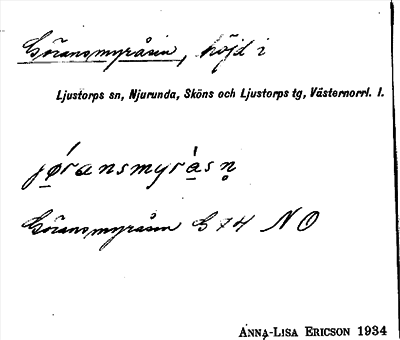 Göransmyråsen, höjd i
Ljustorps sn, Njurunda, Sköns och Ljustorps tg, Västernorrl. l.
jǿ̱ransmyrà̱sn̥
Göransmyråsen G 74 NO
ANNA-LISA ERICSON 1934